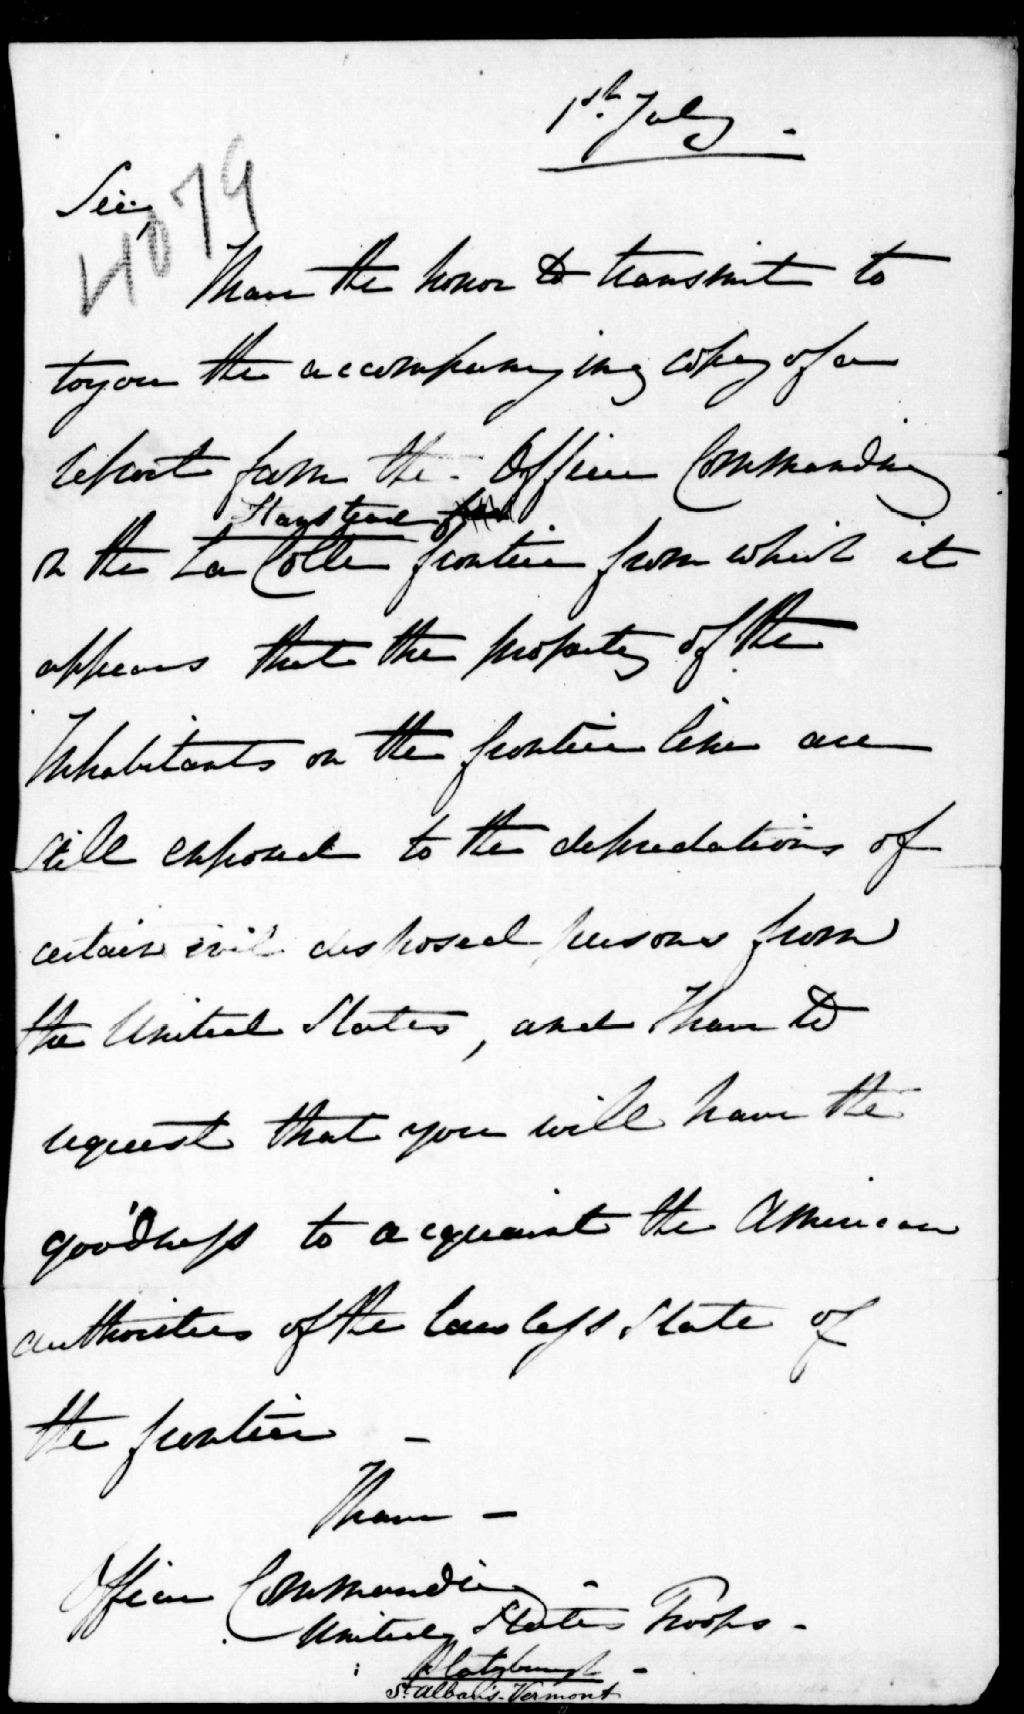 1st. July -
Sir,
4079
I have the honor to transmit to
to you the accompanying copy of a
report from the Officer Commanding
Stanstead
on the La Colle frontier from which it
appears that the property of the
Inhabitants on the frontier line are
still exposed to the depredations of
certain evil disposed persons from
the United States, and I have to
request that you will have the
goodness to acquaint the American
authorities of the lawless State of
the frontier -
I have -
Officer Commanding -
United States Troops -
Platsburgh -
St. Albans. Vermont